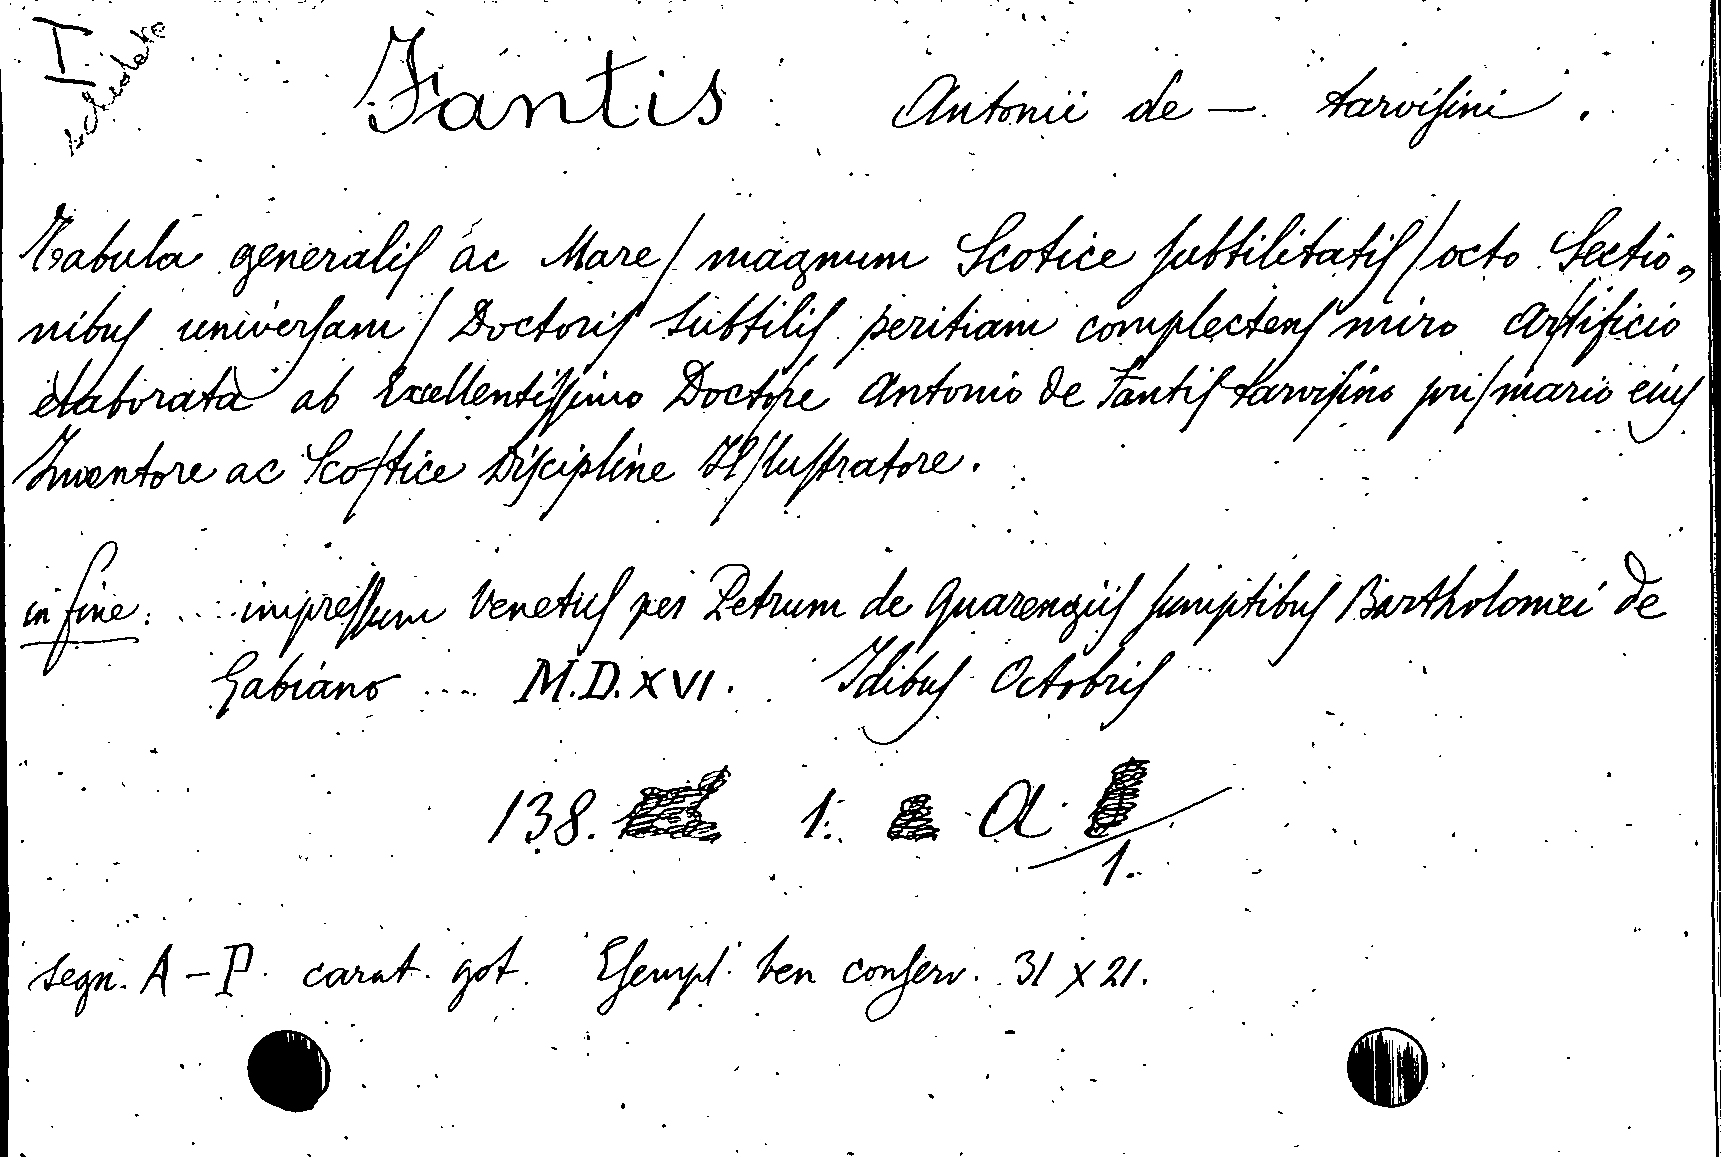 I
schedato
Fantis Antonii de — tarvisini.
Tabula generalis ac Mare / magnum Scotice subtilitatis / octo Sectio„
nibus universam / Doctoris subtilis peritiam complectens miro Ar/tificio
elaborata ab Excellentissimo Docto/re Antonio de Fantis tarvisino pri/mario eius
Inventore ac Sco/tice Discipline Il/lustratore.
in fine: ... impressum Venetiis per Petrum de Quarengiis sumptibus Bartholomei de
Gabiano .... M.D.XVI. Idibus Octobris
138. 1. a
1.
segn. A – P. carat. got. Esempl. ben conserv. 31 x 21.